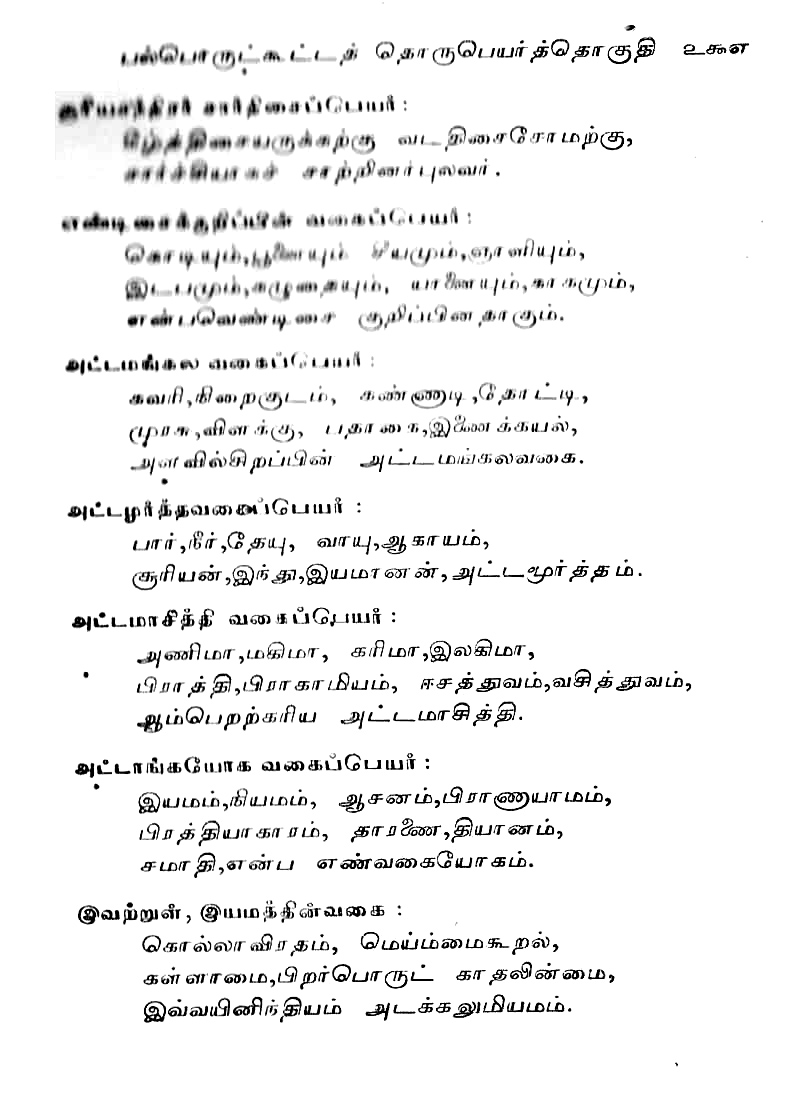 பல்பொருட்கூட்டத் தொருபெயர்த்தொகுதி ௨௯௭
சூரியசந்திரர் சார்திசைப்பெயர் :
கீழ்த்திசையருக்கற்கு வடதிசைசோமற்கு,
சார்ச்சியாகச் சாற்றினர்புலவர்.
எண்டிசைக்குறிப்பின் வகைப்பெயர் :
கொடியும்,பூனையும் சீயமும்,ஞானியும்,
இடபமும்,கழுதையும், யானையும்,காகமும்,
எண்பவெண்டிசை குறிப்பினதாகும்.
அட்டமங்கல வகைப்பெயர் :
கவரி,நிறைகுடம், கண்ணாடி,தோட்டி,
முரசு,விளக்கு, பதாகை,இணைக்கயல்,
அளவில்சிறப்பின் அட்டமங்கலவகை.
அட்டமூர்த்தவகைப்பெயர் :
பார்,நீர்,தேயு, வாயு,ஆகாயம்,
சூரியன்,இந்து,இயமானன்,அட்டமூர்த்தம்.
அட்டமாசித்தி வகைப்பெயர் :
அணிமா,மகிமா, கரிமா,இலகிமா,
பிராத்தி,பிராகாமியம், ஈசத்துவம்,வசித்துவம்,
ஆம்பெறற்கரிய அட்டமாசித்தி.
அட்டாங்கயோக வகைப்பெயர் :
இயமம்,நியமம், ஆசனம்,பிராணாயாமம்,
பிரத்தியாகாரம், தாரணை,தியானம்,
சமாதி,என்ப எண்வகையோகம்.
இவற்றுள், இயமத்தின்வகை :
கொல்லாவிரதம், மெய்ம்மைகூறல்,
கள்ளாமை,பிறர்பொருட் காதலின்மை,
இவ்வயினிந்தியம் அடக்கலுமியமம்.